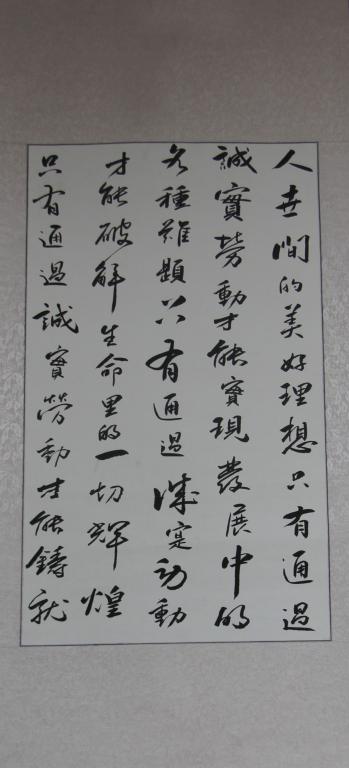 人世間的美好理想只有通過
誠實勞動才能實現發展中的
各種難題只有通過誠寔勞動
才能破解生命里的一切輝煌
只有通過誠實勞動才能鑄就